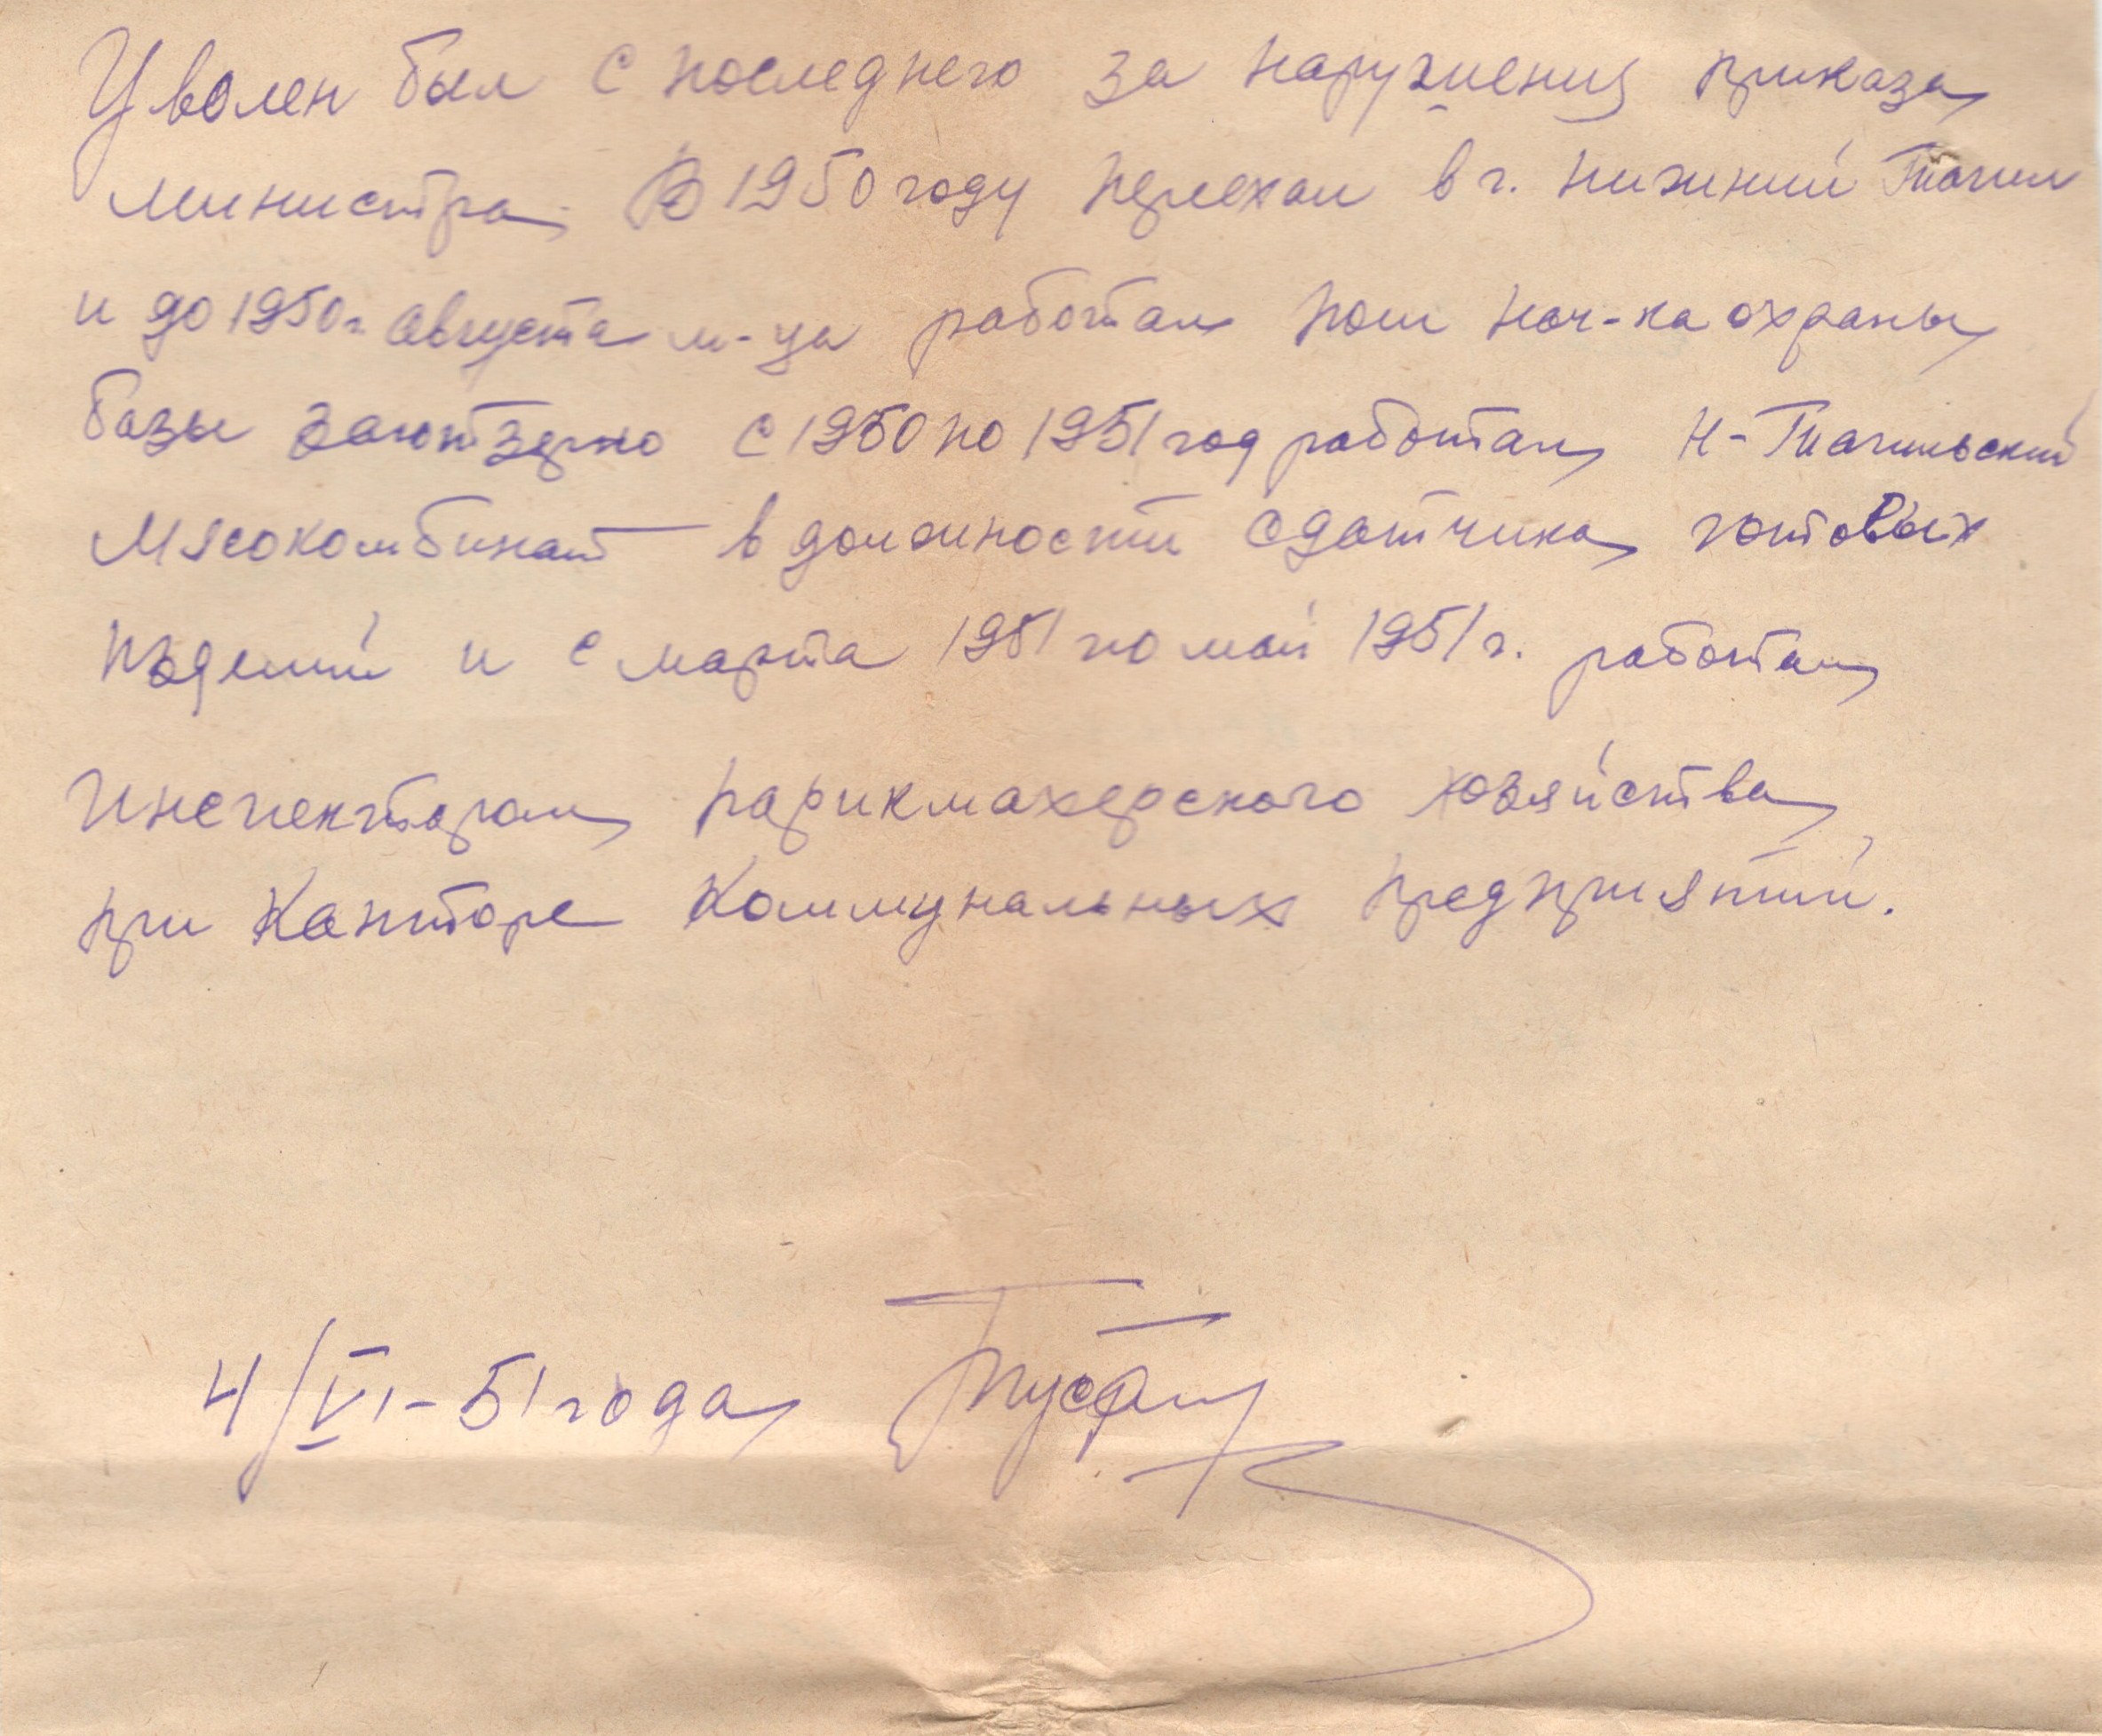 Уволен был с последнего за нарушения приказа
министра. В 1950 году переехал в г. Нижний Тагил
и до 1950 г. августа м-ца работал пом нач-ка охраны
базы заготзерно с 1950 по 1951 год работал Н-Тагильский
Мясокомбинат в должности сдатчика готовых
и с марта 1951 по май 1951 г. работал
Инспектором парикмахерского хозяйства
при Канторе Коммунальных предприятий.
4/VI-51 года